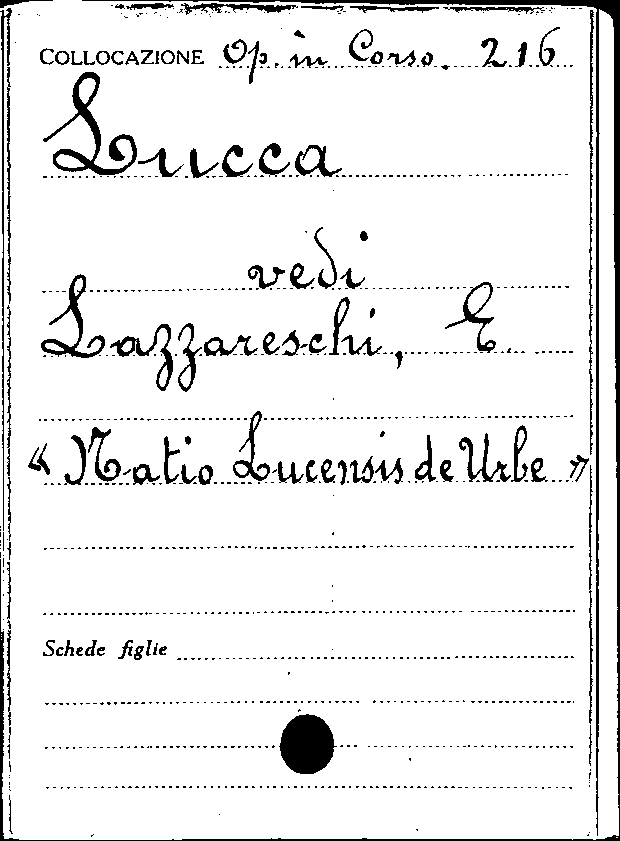 COLLOCAZIONE Op. in Corso. 216
Lucca
vedi
Lazzareschi, E.
« Natio Lucensis de Urbe »
Schede figlie